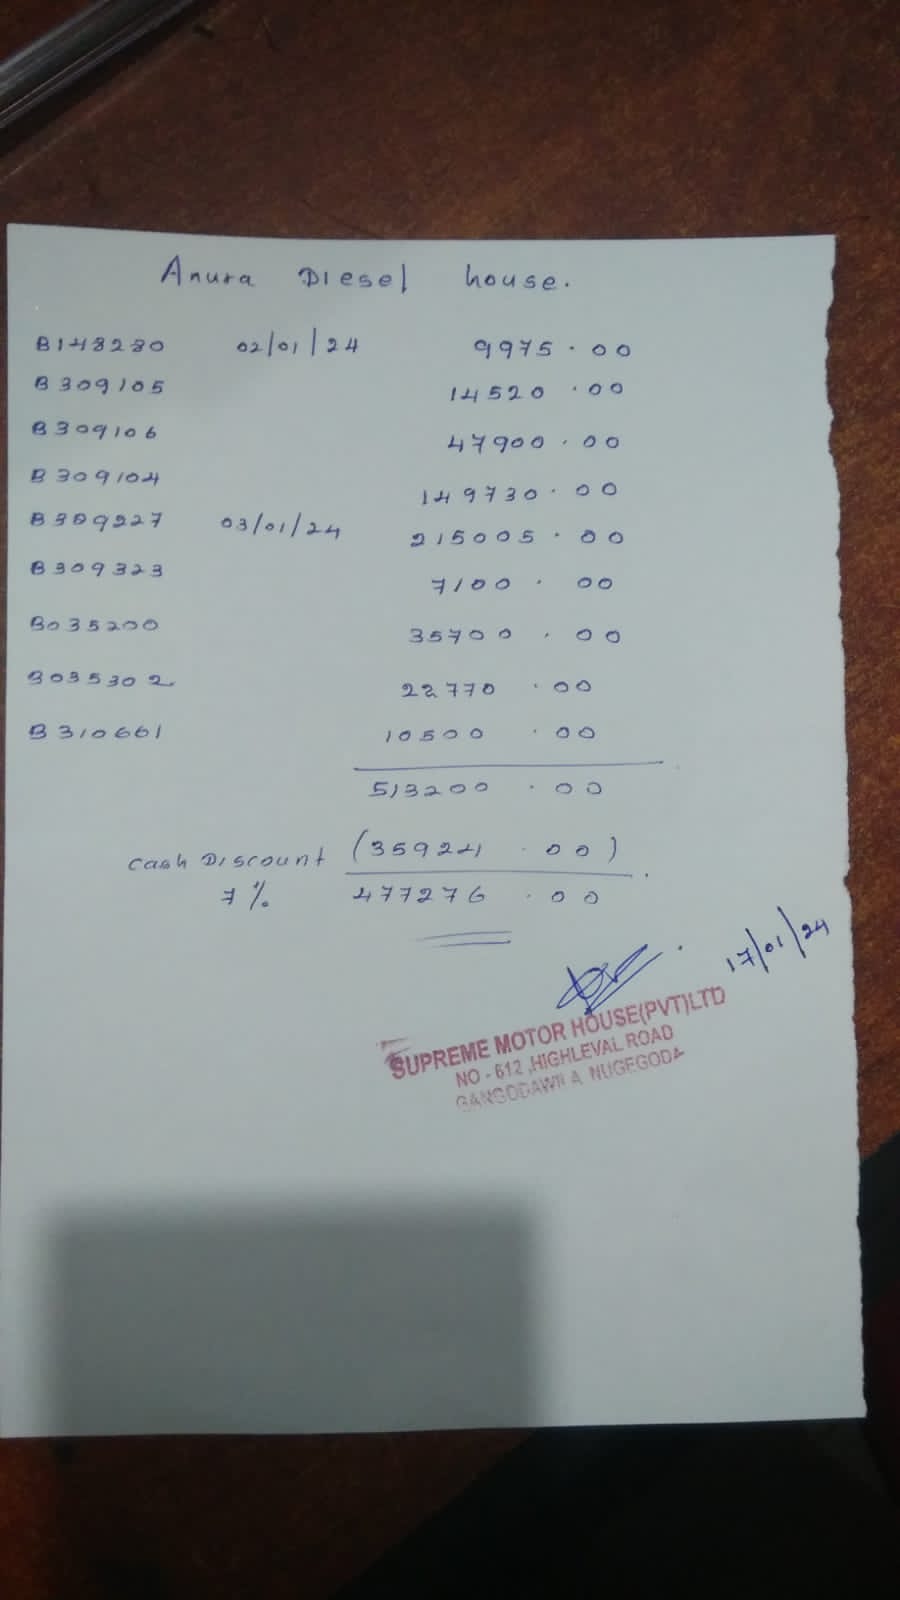 Anura Diesel house.
B148280 02/01/24 9975.00
B309105 14520.00
B309106 47900.00
B309104 149730.00
B309227 03/01/24 215005.00
B309323 7100.00
B035200 35700.00
B035302 22770.00
B310661 10500.00
513200.00
Cash Discount (35924.00)
7% 477276.00
17/01/24
SUPREME MOTOR HOUSE(PVT)LTD
NO - 612 ,HIGHLEVAL ROAD
GANGODAWILA NUGEGODA